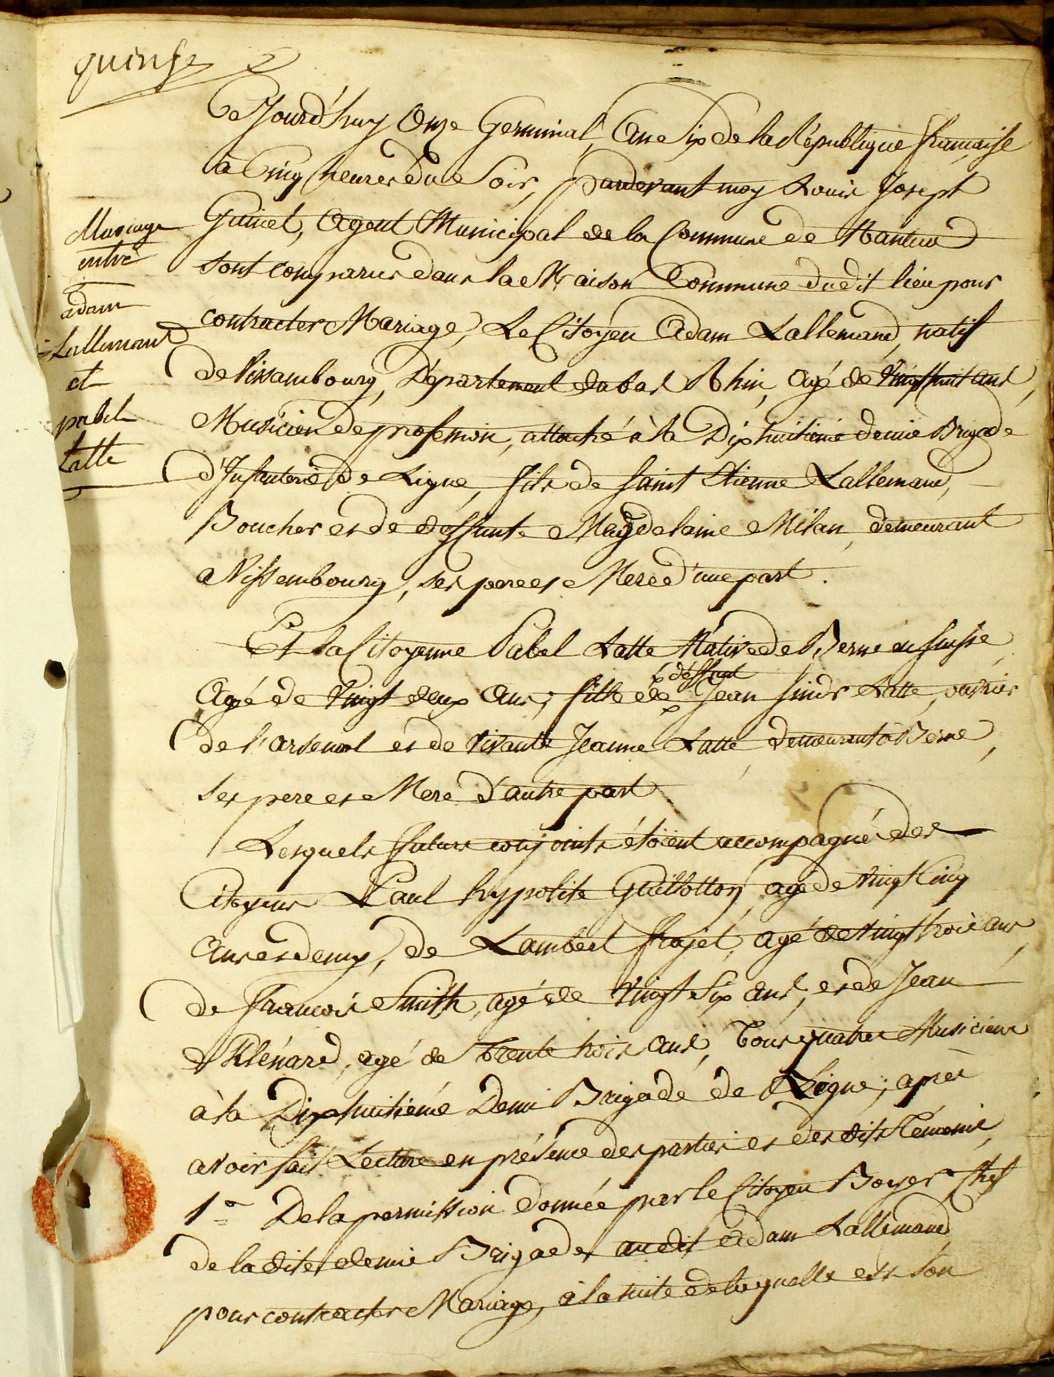 quinse
Cejourd'huy Onze Germinal, An Six de la République française
à Cinq heures du Soir, pardevant moy Louis Joseph
agent Municipal de la Commune de Nanteuil
sont comparus dans la Maison Commune dudit lieu pour
contracter Mariage, Le Citoyen Adam Lallemand, natif
de Vissambourg, Département du bas Rhin, agé de vingt huit ans,
Musicien de profession, attaché à la Dixhuitiéme demie Brigade
d'Infanterie de Ligne, fils de Saint Etienne Lallemand,
Boucher et de déffunte Magdelaine Milan, demeurant
a Vissembourg, ses pere et Mere d'une part.
Mariage
entre
adam
Lallemand
et
pabel
Latte
Et la Citoyenne Pabel Latte Native de Berne en Suisse
agé de vingt deux ans, fille de déffunt Jean Latte, ouvrier
de l'arsenal et de vivante Jeanne Latte, demeurant à Berne,
ses pere et Mere d'autre part
Lesquels futurs conjoints étoient accompagné des
Citoyens Paul hypolite Guillotton, agé de vingt Cinq
ans et demy, de Lambert frojet, agé de vingt trois ans,
de francois Smith, agé de vingt Six ans, et de Jean
Klénard, agé de trente trois ans, Tous quatre Musiciens
à la Dixhuitiéme Demi Brigade de Ligne; après
avoir fait Lecture en présence des parties et des dits Témoins,
1° De la permission donnée par le Citoyen Boyer Chef
de la dite demie Brigade audit adam Lallemand
pour contracter Mariage, à la suite de laquelle est son